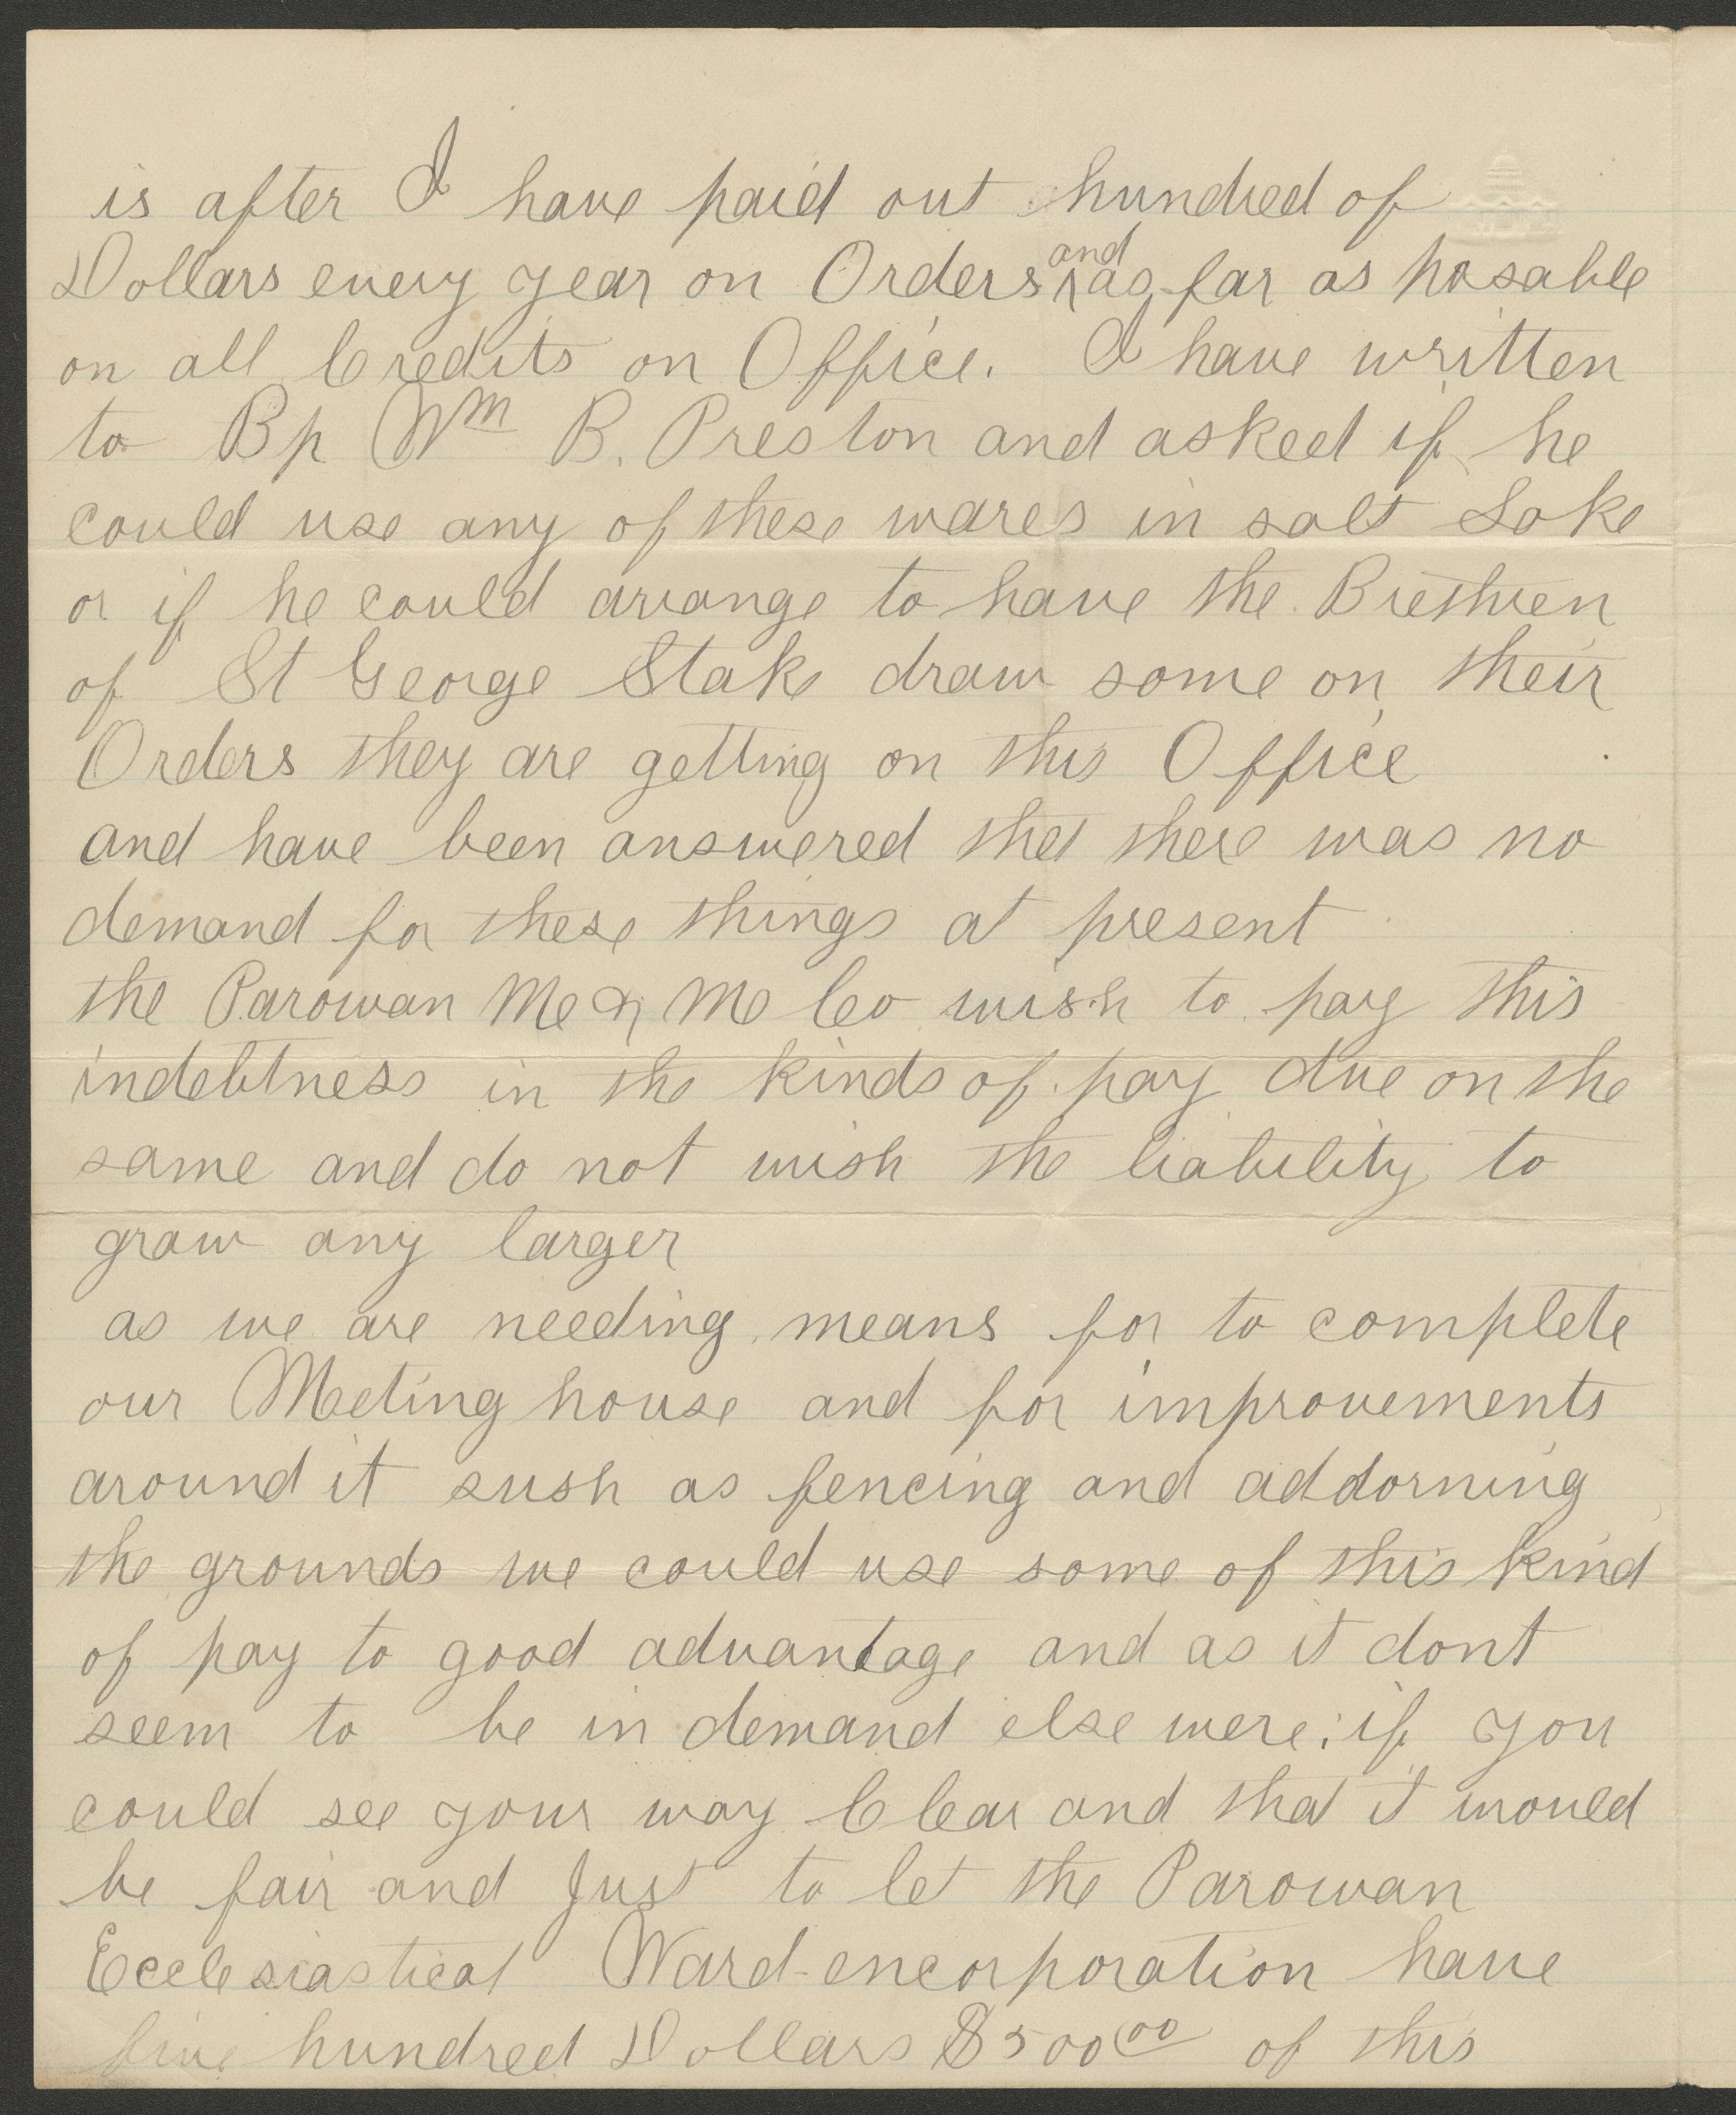 is after I have paid out hundred of
Dollars every year on Orders and as far as posable
on all Credits on Office. I have written
to Bp Wm B. Preston and asked if he
could use any of these wares in salt Lake
or if he could arrange to have the Brethren
of St George Stake draw some on their
Orders they are getting on this Office
and have been answered that there was no
demand for these things at present
the Parowan Me & Ma Co wish to pay this
indebtness in the kinds of pay due on the
same and do not wish the liability to
grow any larger
as we are needing means for to complete
our Meting house and for improvements
around it sush as fencing and addorning
the grounds we could use some of this kind
of pay to good advantage and as it dont
seem to be in demand else were; if you
could see your way Clear and that it would
be fair and Just to let the Parowan
Ecclesiastical Ward encorporation have
five hundred Dollars $500.00 of this